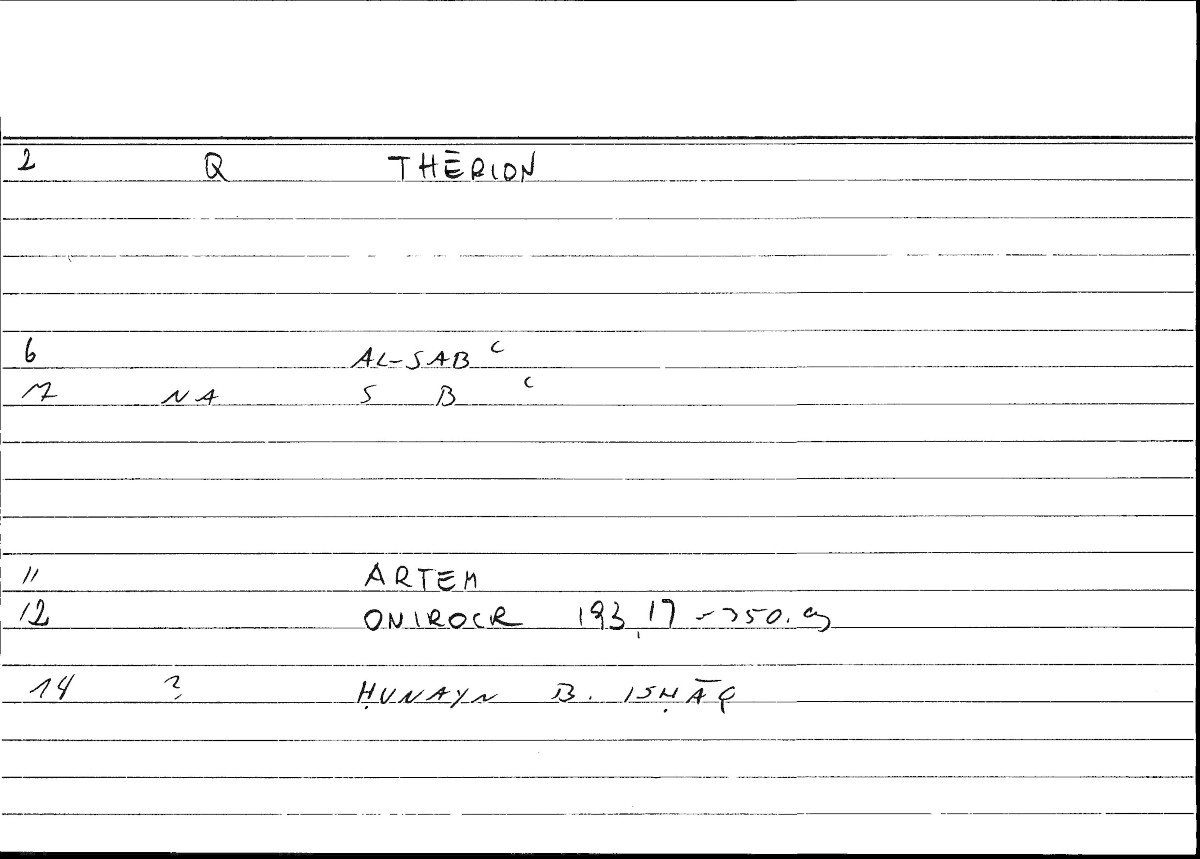 2 Q THĒRION
6 AL-SABʿ
7 NA S B ʿ
11 ARTEM
12 ONIROCR 193,17
14 ? ḤUNAYN B. ISḤĀQ